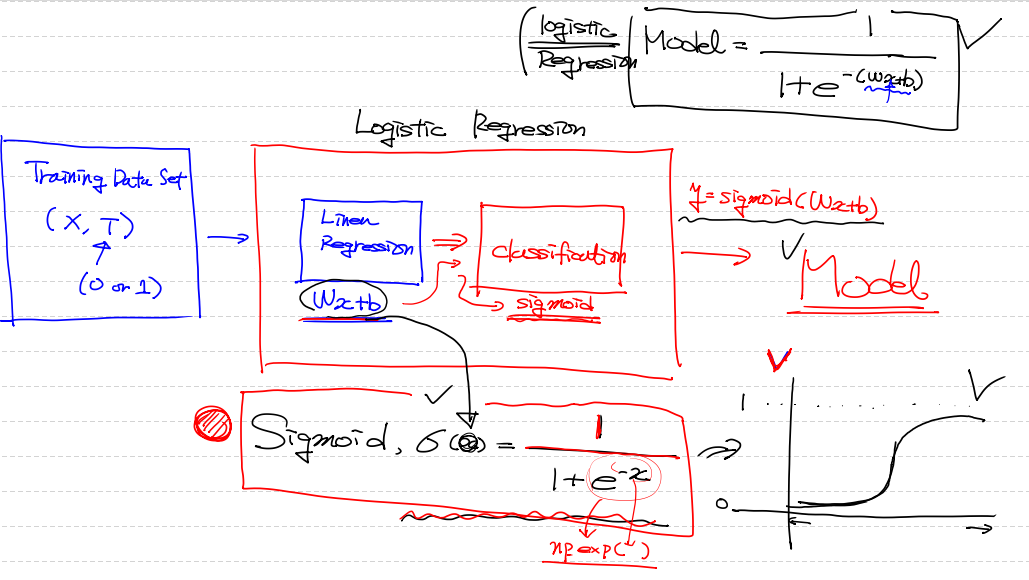 logistic Regression Model = 1 / 1+e^-(Wx+b)
Logistic Regression
Training Data Set
(X, T)
(0 or 1)
Linear
Regression
Wx+b
Classification
sigmoid
y=sigmoid(Wx+b)
Model
Sigmoid, σ(x) = 1 / 1+e^-x
np exp( )
1
0